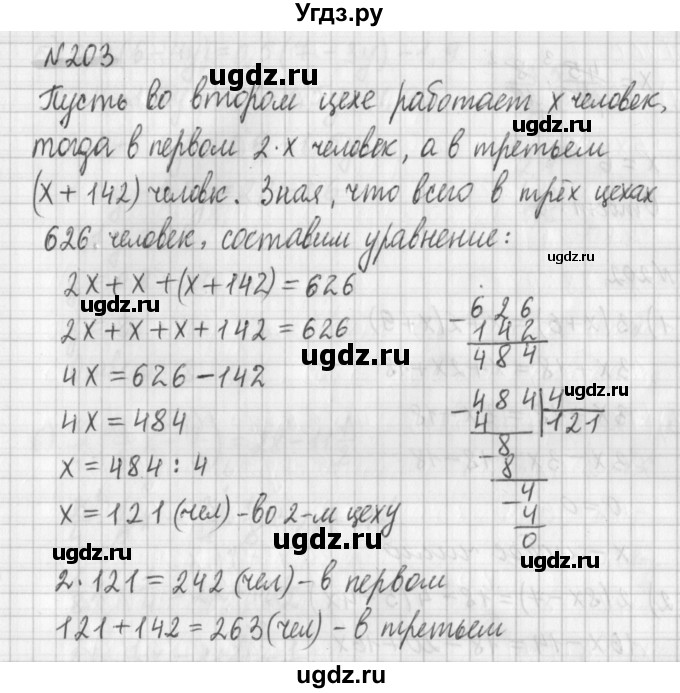 Угдз.ру
№203
Пусть во втором цехе работает x человек,
тогда в первом 2·x человек, а в третьем
(x + 142) человк. Зная, что всего в трёх цехах
626 человек, составим уравнение:
2x + x + (x + 142) = 626
2x + x + x + 142 = 626
4x = 626 - 142
4x = 484
x = 484 : 4
x = 121 (чел) - во 2-м цеху
2·121 = 242 (чел) - в первом
121 + 142 = 263 (чел) - в третьем
- 626
142
484
- 484 | 4
4 | 121
- 8
8
- 4
4
0
ugdz.ru
ugdz.ru
ugdz.ru
ugdz.ru
ugdz.ru
ugdz.ru
ugdz.ru
ugdz.ru
ugdz.ru
ugdz.ru
ugdz.ru